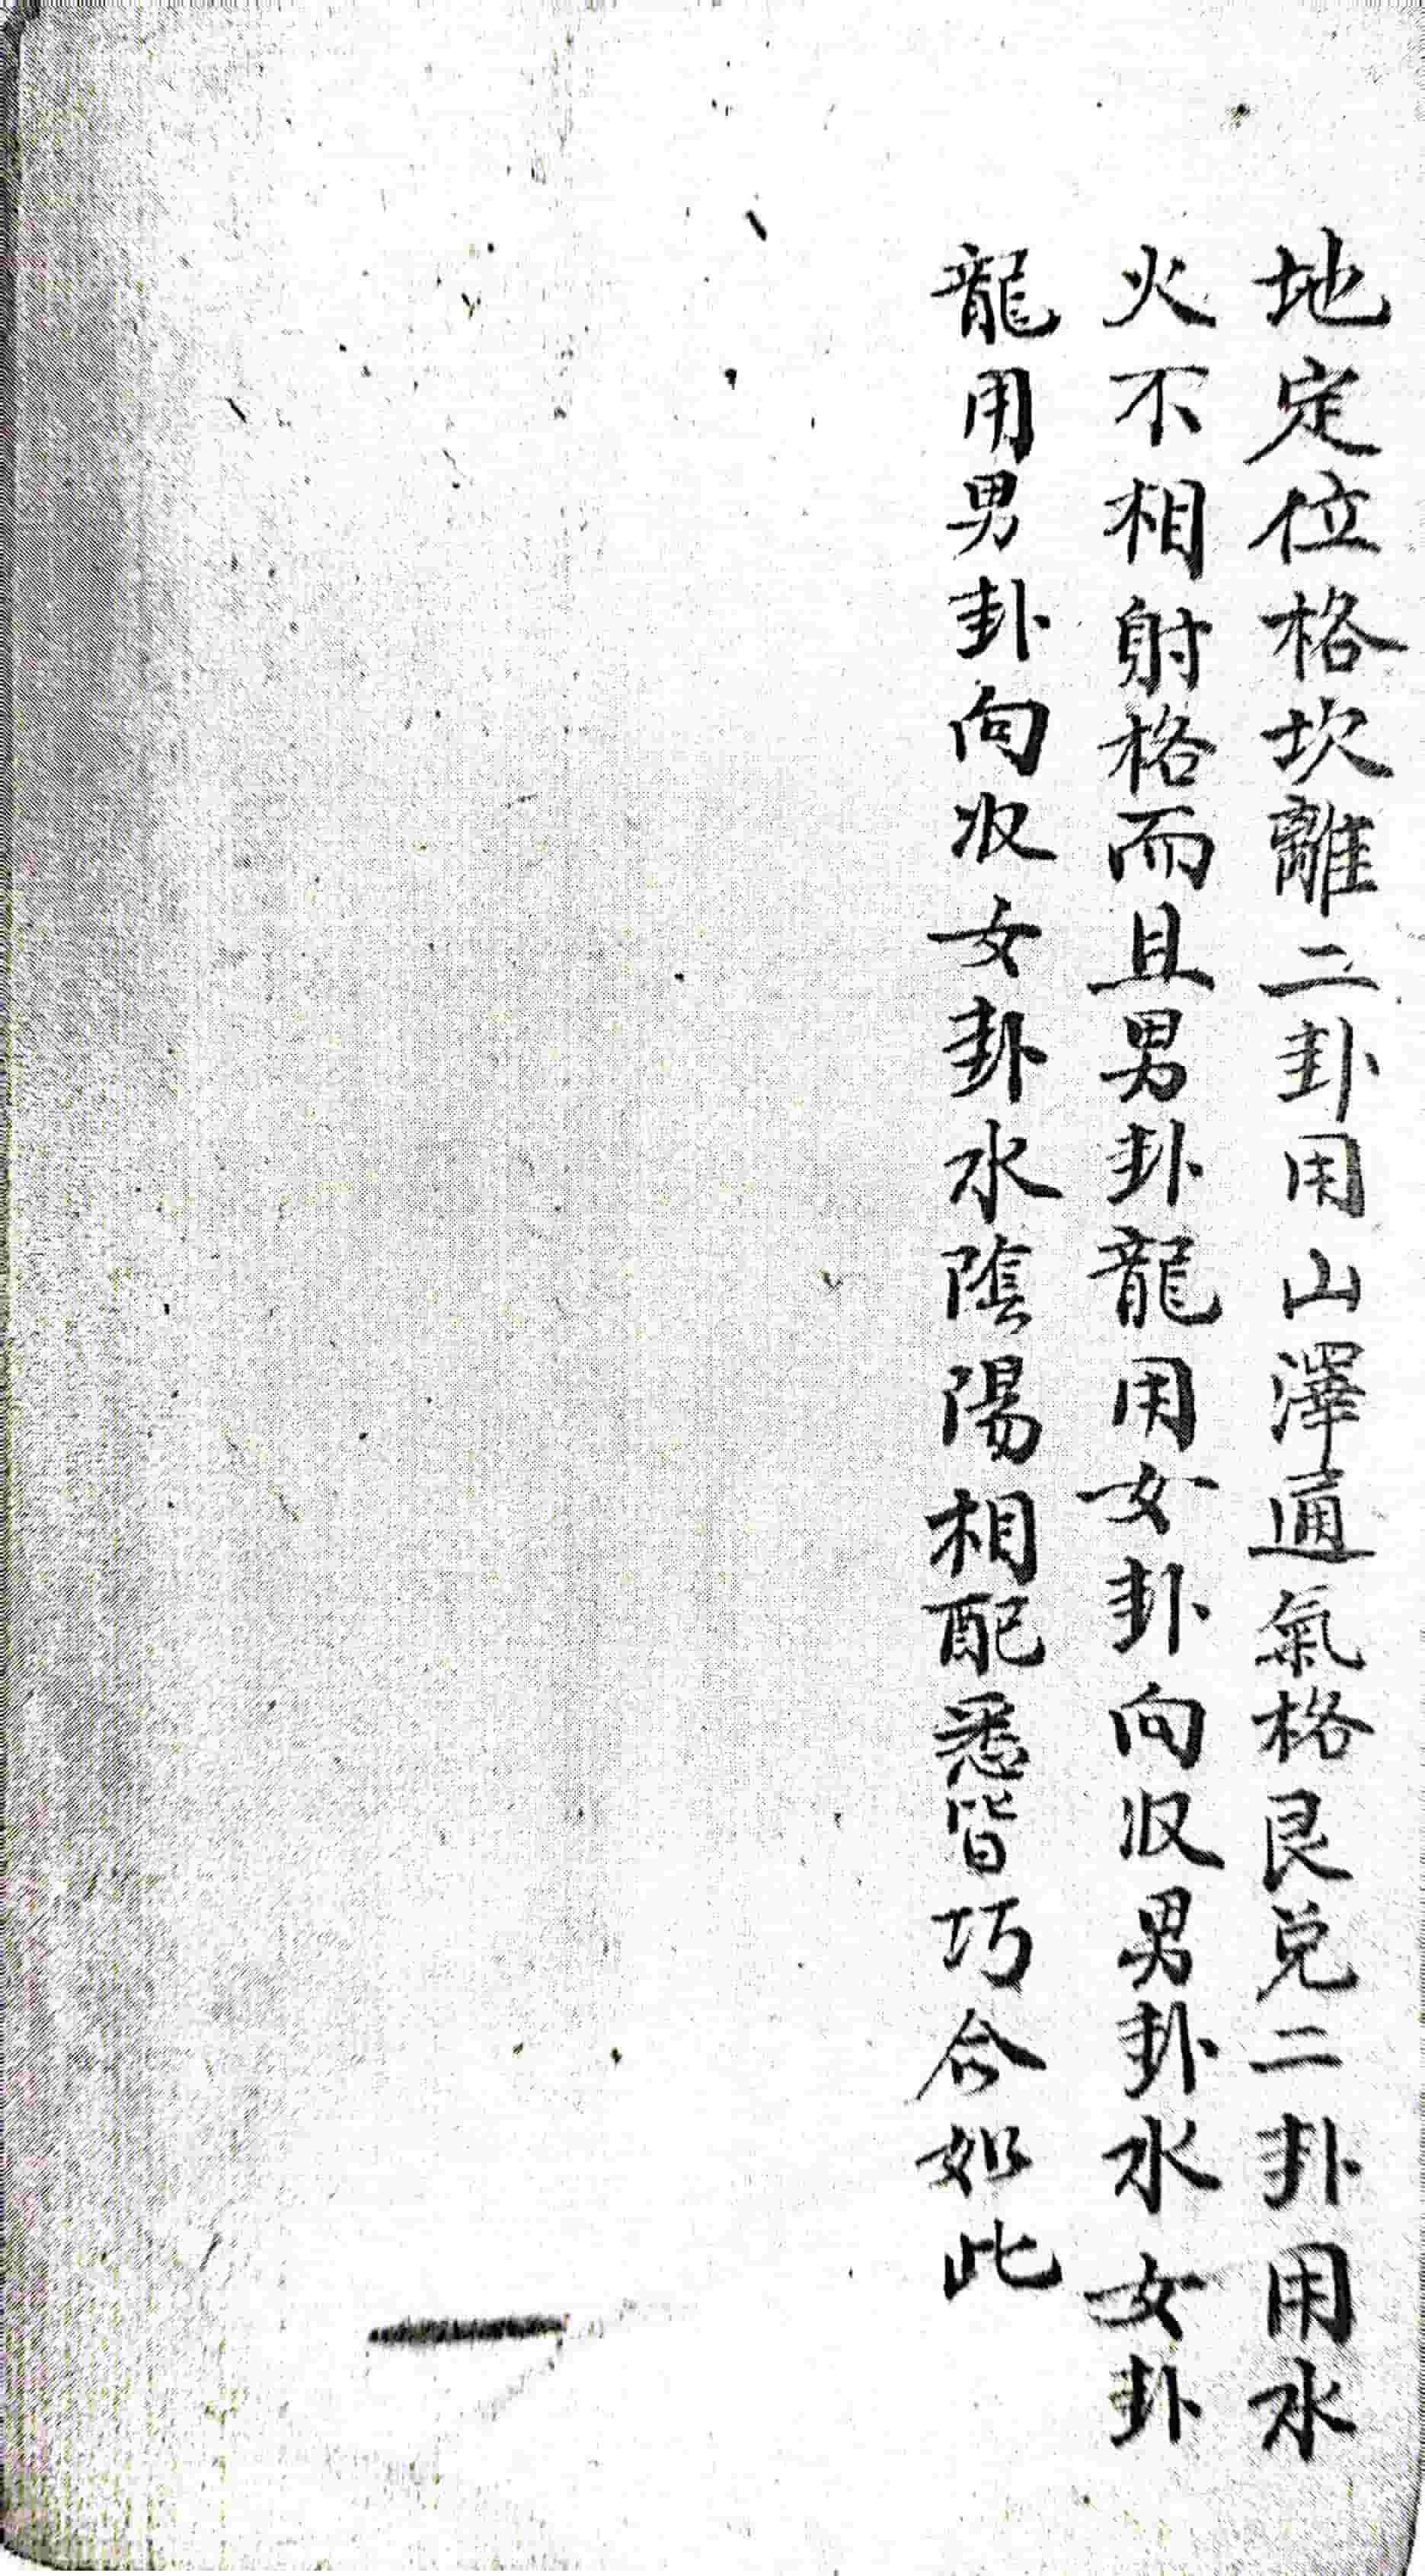 地定位格坎離二卦用山澤通氣格艮兌二卦用水
火不相射格而且男卦龍用女卦向収男卦水女卦
龍用男卦向収女卦水陰陽相配悉皆巧合如此